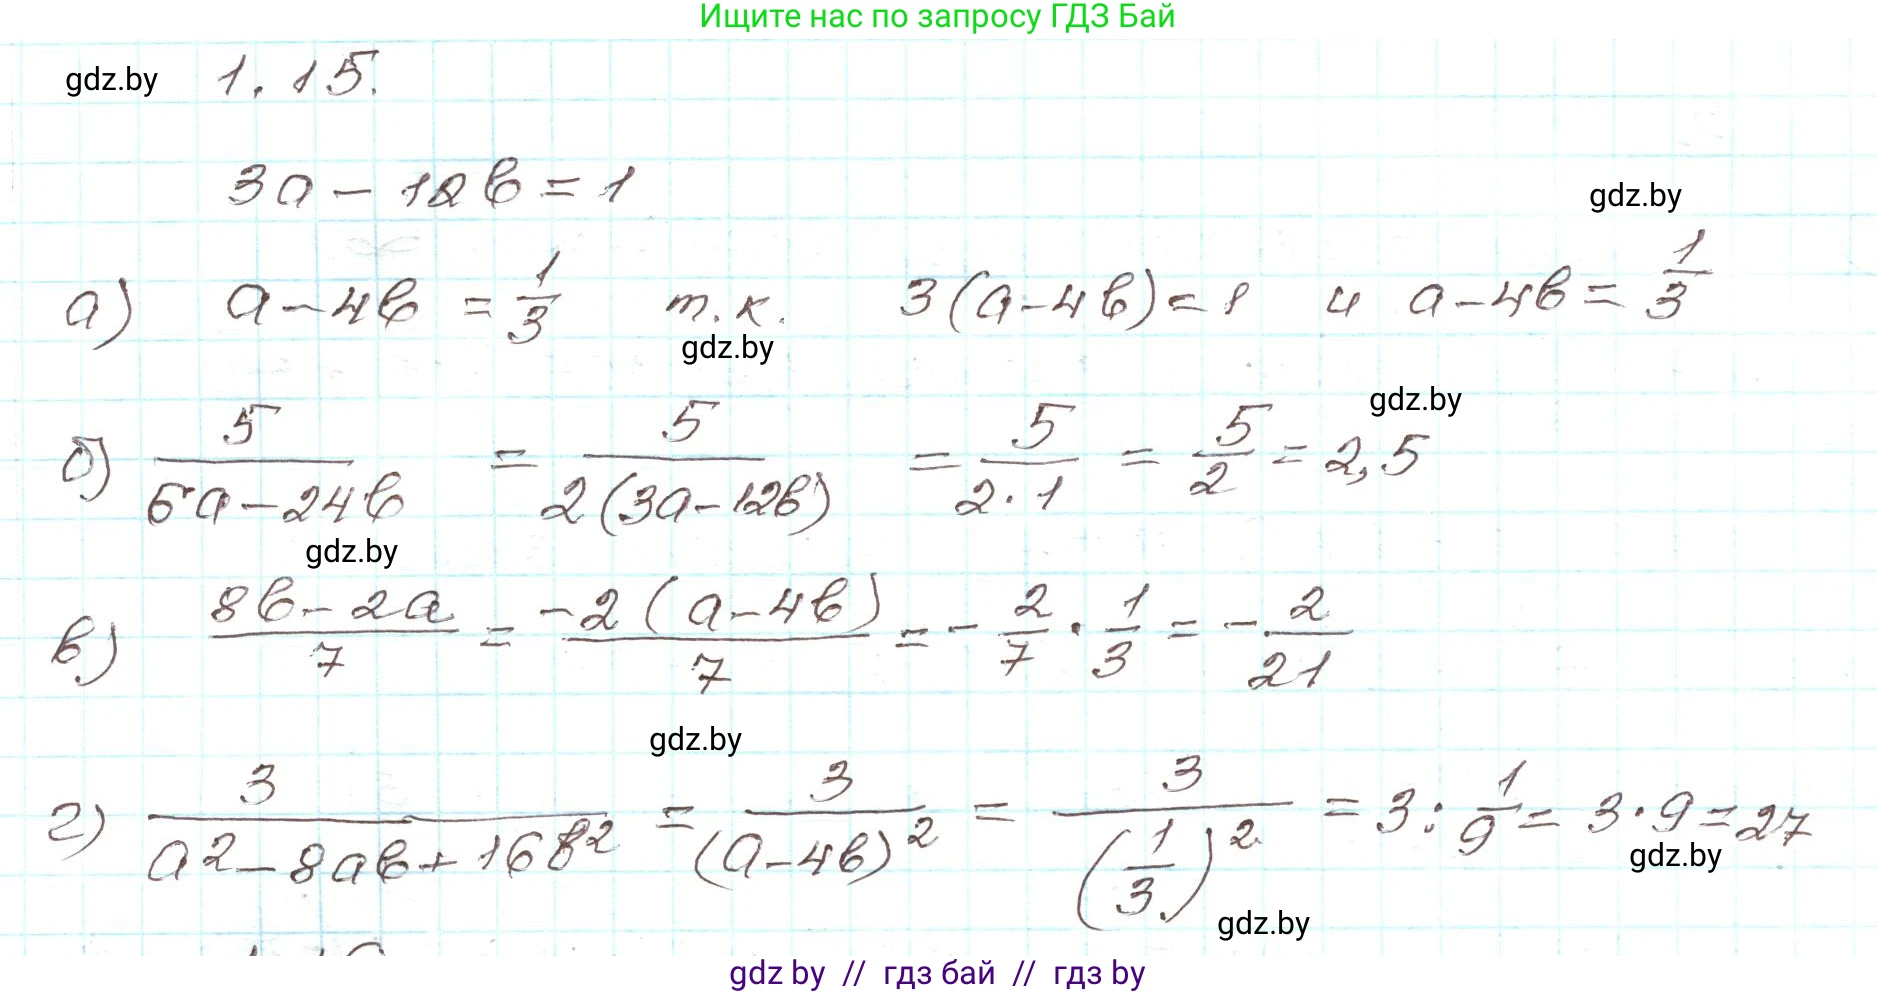 Ищите нас по запросу ГДЗ Бай
gdz.by 1.15.
3a - 12b = 1
gdz.by
а) a - 4b = 1/3 т.к. 3(a - 4b) = 1 и a - 4b = 1/3
gdz.by
gdz.by
б) 5/(6a - 24b) = 5/(2(3a - 12b)) = 5/(2·1) = 5/2 = 2,5
gdz.by
в) (8b - 2a)/7 = (-2(a - 4b))/7 = -2/7 · 1/3 = -2/21
gdz.by
г) 3/(a² - 8ab + 16b²) = 3/(a - 4b)² = 3/(1/3)² = 3 : 1/9 = 3·9 = 27
gdz.by
gdz.by
gdz by // гдз бай // гдз by